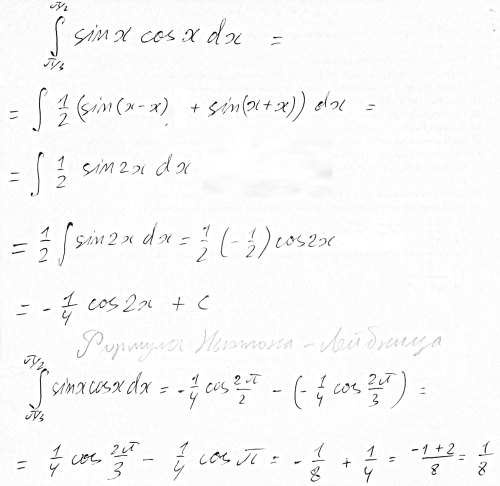 ∫_{π/3}^{π/2} sin x cos x dx =
= ∫ 1/2 (sin(x-x) + sin(x+x)) dx =
= ∫ 1/2 sin 2x dx
= 1/2 ∫ sin 2x dx = 1/2 (-1/2) cos 2x
= -1/4 cos 2x + c
Формула Ньютона - Лейбница
∫_{π/3}^{π/2} sin x cos x dx = -1/4 cos 2π/2 - (-1/4 cos 2π/3) =
= 1/4 cos 2π/3 - 1/4 cos π = -1/8 + 1/4 = (-1+2)/8 = 1/8